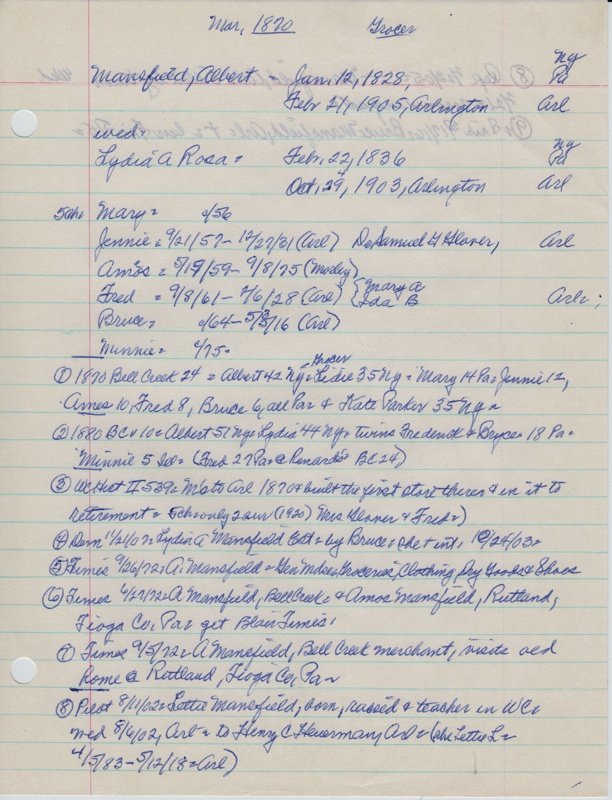 Mar, 1870 Grocer
NY
Mansfield, Albert = Jan, 12, 1828, Pa
Feb 21, 1905, Arlington Arl
wed=
NY
Lydia A Rosa = Feb, 22, 1836 Pa
Oct, 29, 1903, Arlington Arl
5ch= Mary = c/56
Jennie = 9/21/57- 12/27/31 (Arl) Dr Samuel G Glover, Arl
Amos = 5/19/59- 9/8/75 (Mosley)
Fred = 9/8/61- 7/6/28 (Arl) { Mary A
Ida B Arl=;
Bruce = c/64- 5/3/16 (Arl)
Minnie = c/75=
① 1870 Bell Creek 24 = Albert 42 Ny = Grocer Lidie 35 Ny = Mary 14 Pa = Jennie 12,
Amos 10 Fred 8, Bruce 6, all Pa & Kate Parker 35 Ny =
② 1880 BC 10 = Albert 51 Ny = Lydia 44 Ny = twins Frederick & Bryce = 18 Pa =
Minnie 5 = (Fred 27 Pa @ BC 24)
③ WCHist II 539 = M to Arl 1870 & built the first store there & in it to
retirement = 5ch = only 2 sur (1920) Mrs Glover & Fred =)
④ Dem 11/21/07 = Lydia A Mansfield Est = by Bruce = she + int, 10/24/03 =
⑤ Times 9/26/72 = A. Mansfield = Gen Mdse = Groceries, Clothing, Dry Goods & Shoes
⑥ Times 4/27/72 = A Mansfield, Bell Creek = & Amos Mansfield, Rutland,
Tioga Co, Pa = get Blair Times,
⑦ Times 9/5/72 = A Mansfield, Bell Creek merchant, visits old
home @ Rutland, Tioga Co, Pa =
⑧ Pilot 8/11/02 = Lettie Mansfield, born, raised & teacher in WC =
wed 8/6/02, Arl = to Henry C Heuerman, Arl = (she Lettie L =
4/5/83- 5/12/18 = Arl)